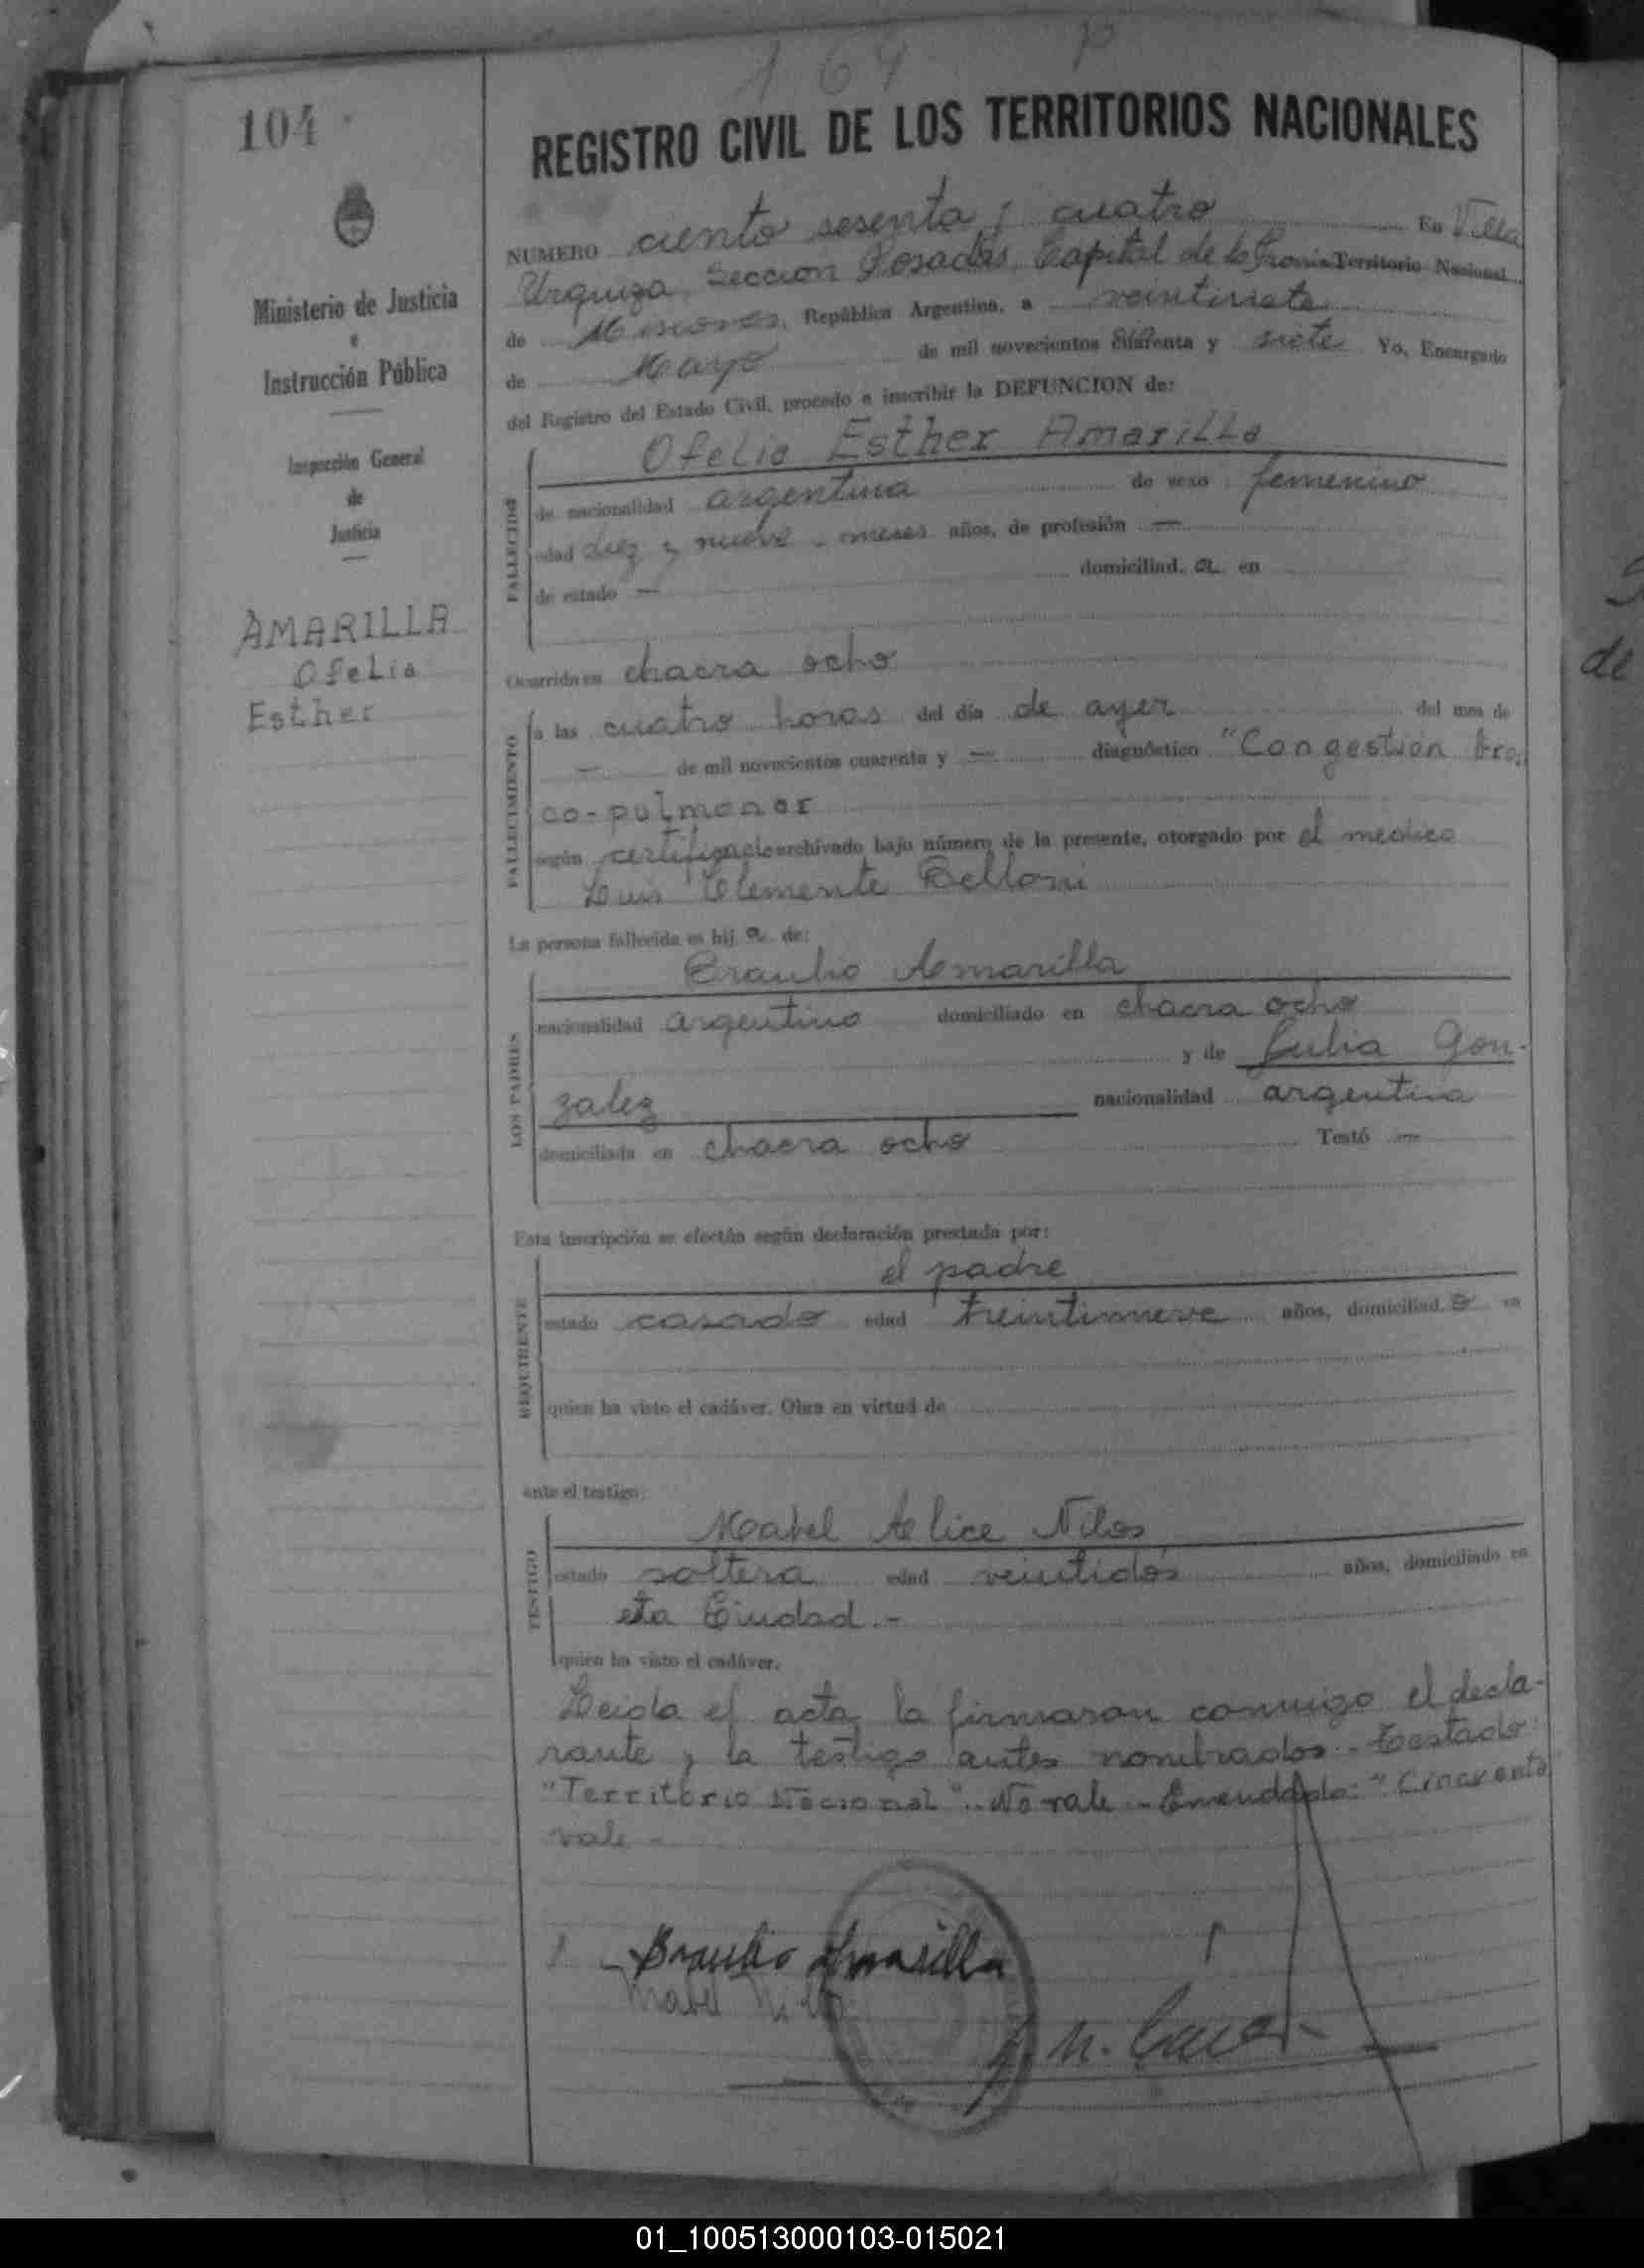 164 p
104
REGISTRO CIVIL DE LOS TERRITORIOS NACIONALES
NUMERO ciento sesenta y cuatro En Villa
Urquiza, Seccion Posadas Capital de la Territorio Nacional
de Misiones, República Argentina, a veintisiete
de Mayo de mil novecientos y siete Yo, Encargado
del Registro del Estado Civil, procedo a inscribir la DEFUNCION de:
Ministerio de Justicia
e
Instrucción Pública
Inspección General
de
Justicia
AMARILLA
Ofelia
Esther
FALLECIDO
Ofelia Esther Amarilla
de nacionalidad argentina de sexo femenino
edad diez y nueve - meses años, de profesión —
de estado — domiciliad a en
Ocurrida en chacra ocho
FALLECIMIENTO
a las cuatro horas del día de ayer del mes de
— de mil novecientos cuarenta y — diagnóstico "Congestión
co-pulmonar
según certificado archivado bajo número de la presente, otorgado por el medico
Luis Clemente Belloni
La persona fallecida es hij a de:
LOS PADRES
Braulio Amarilla
nacionalidad argentino domiciliado en chacra ocho
y de Julia Gon-
zalez nacionalidad argentina
domiciliada en chacra ocho Testó —
Esta inscripción se efectúa según declaración prestada por:
REQUIRENTE
el padre
estado casado edad treintinueve años, domiciliad o en
quien ha visto el cadáver. Obra en virtud de
ante el testigo:
TESTIGO
Mabel Alice Nilos
estado soltera edad veintidós años, domiciliado en
esta Ciudad.-
quien ha visto el cadáver.
Leida el acta, la firmaron conmigo el decla-
rante y la testigo antes nombrados.- Testado:
"Territorio Nacional".- No vale.- Enmendado: "Cincuenta"
vale.-
Braulio Amarilla
Mabel
de
01_100513000103-015021